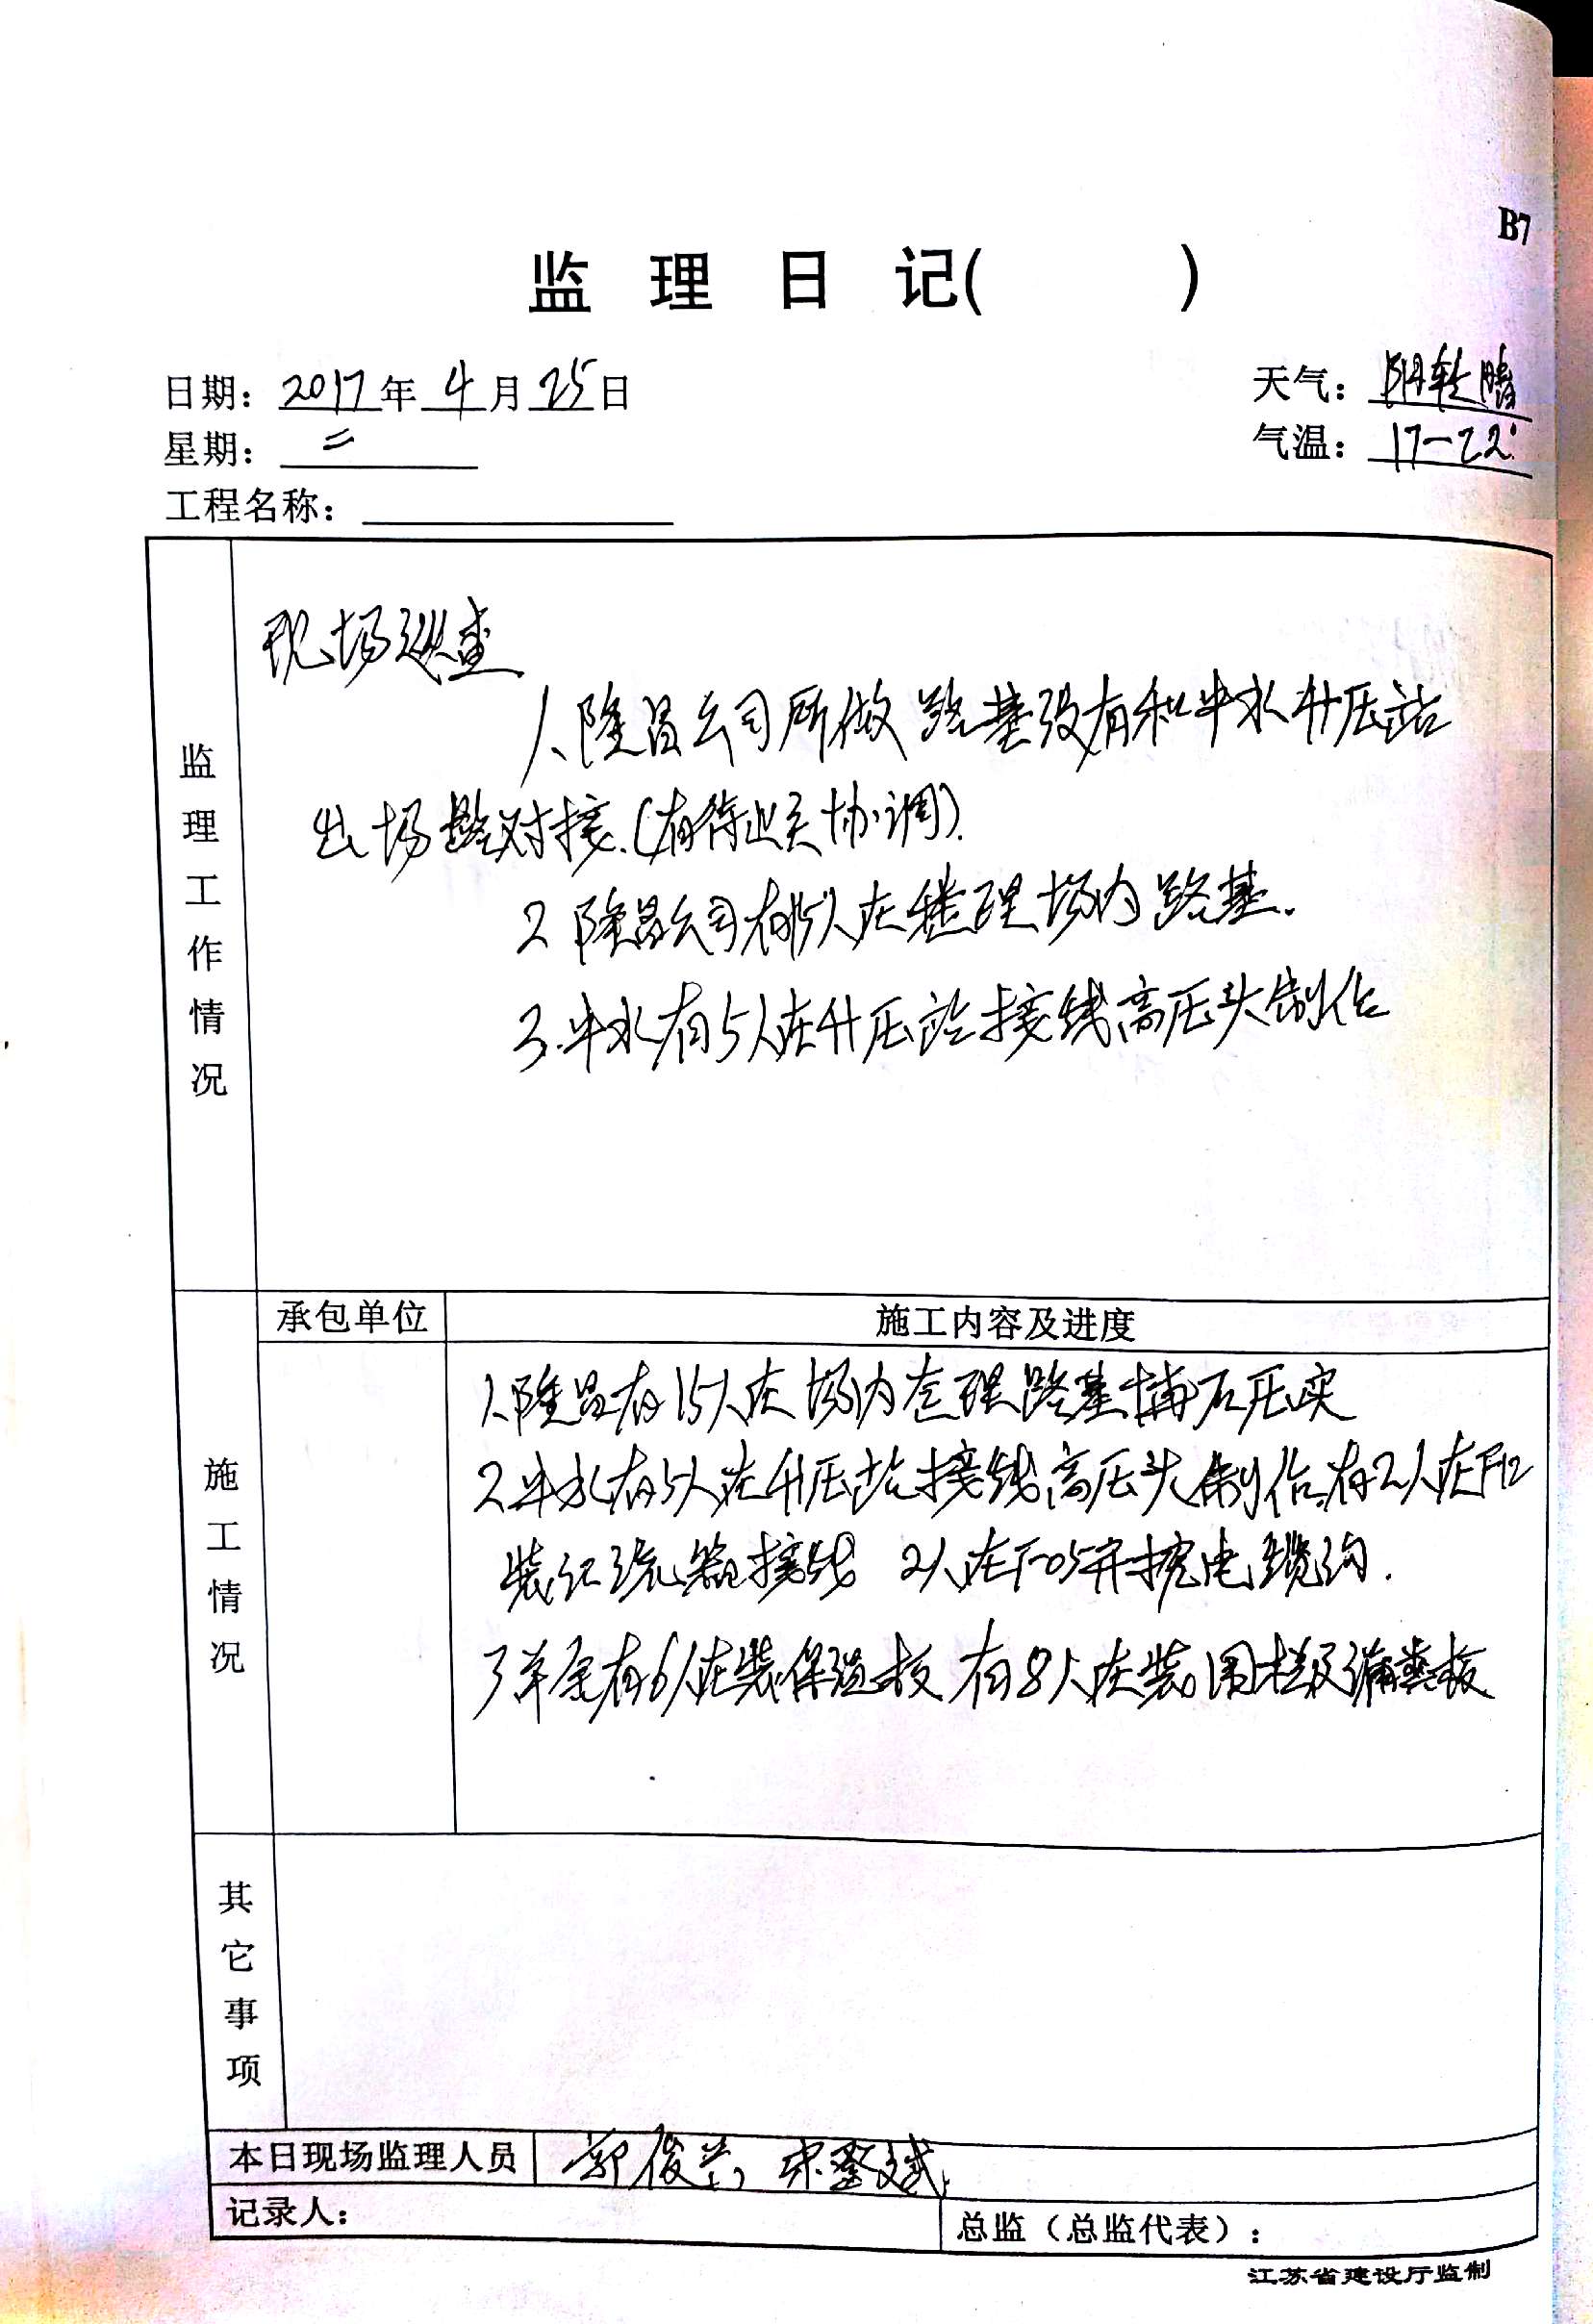 B7
监 理 日 记(        )
日期: 2017 年 4 月 25 日
天气: 阴转晴
星期: 二
气温: 17-22°
工程名称:
监理工作情况
现场巡查
1、隆昌公司所做路基没有和中水升压站
出场路对接.(有待业主协调).
2 隆昌公司有15人在整理场内路基.
3.中水有5人在升压站接线高压头制作
承包单位
施工内容及进度
施工情况
1.隆昌有15人在场内整理路基铺石压实
2.中水有5人在升压站接线高压头制作.有2人在F12
装汇流器接线 2人在F05开挖电缆沟.
3 有6人在装保温板 有8人在装围栏及
其它事项
本日现场监理人员
郭俊
记录人:
总监（总监代表）:
江苏省建设厅监制